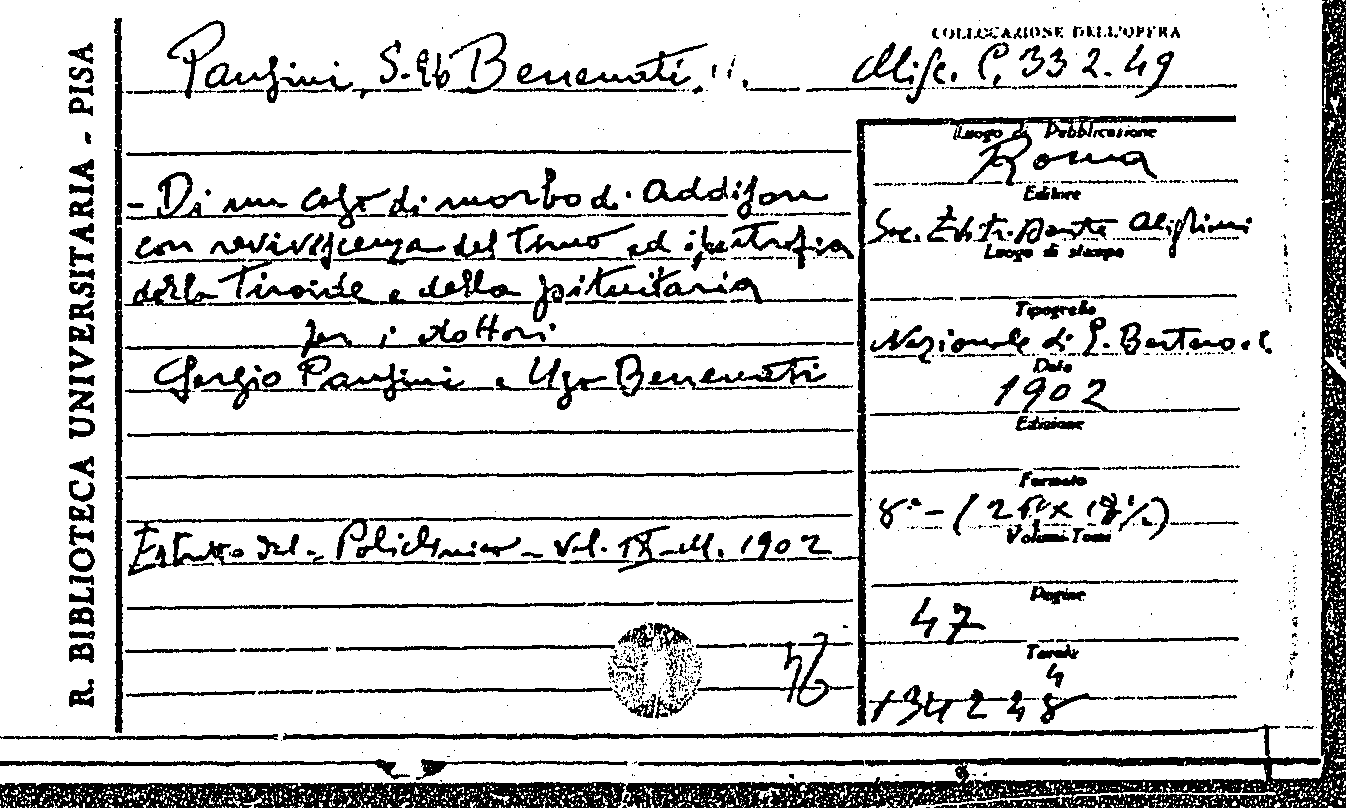 R. BIBLIOTECA UNIVERSITARIA - PISA
COLLOCAZIONE DELL'OPERA
Pansini, S. e Benenati, U.
Misc. C. 332.49
- Di un caso di morbo di Addison
con reviviscenza del timo ed ipertrofia
della Tiroide e della pituitaria
per i dottori
Sergio Pansini e Ugo Benenati
Estratto dal - Policlinico - Vol. IX-M. 1902
Luogo di Pubblicazione
Roma
Editore
Soc. Edit. Dante Alighieri
Luogo di stampa
Tipografo
Nazionale di G. Bertero e C.
Data
1902
Edizione
Formato
8° - (
Volumi-Tomi
Pagine
47
Tavole
4
134248